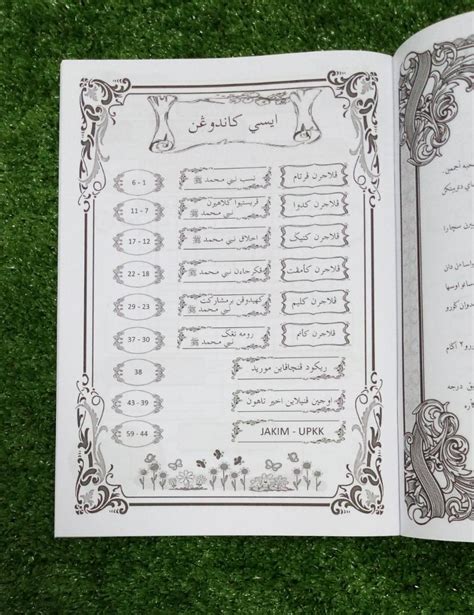 ايسي کاندوڠن
ڤلاجرن ڤرتام
نسب نبي محمد ﷺ
6 - 1
ڤلاجرن کدوا
ڤريستيوا کلاهيرن
نبي محمد ﷺ
11 - 7
ڤلاجرن کتيݢ
اخلاق نبي محمد ﷺ
17 - 12
ڤلاجرن کأمڤت
ڤکرجاءن نبي محمد ﷺ
22 - 18
ڤلاجرن کليم
کهيدوڤن برمشارکت
نبي محمد ﷺ
29 - 23
ڤلاجرن کانم
رومه تڠݢ
نبي محمد ﷺ
37 - 30
ريکود ڤنچاڤاين موريد
38
اوجين ڤنيلاين اخير تاهون
43 - 39
JAKIM - UPKK
59 - 44